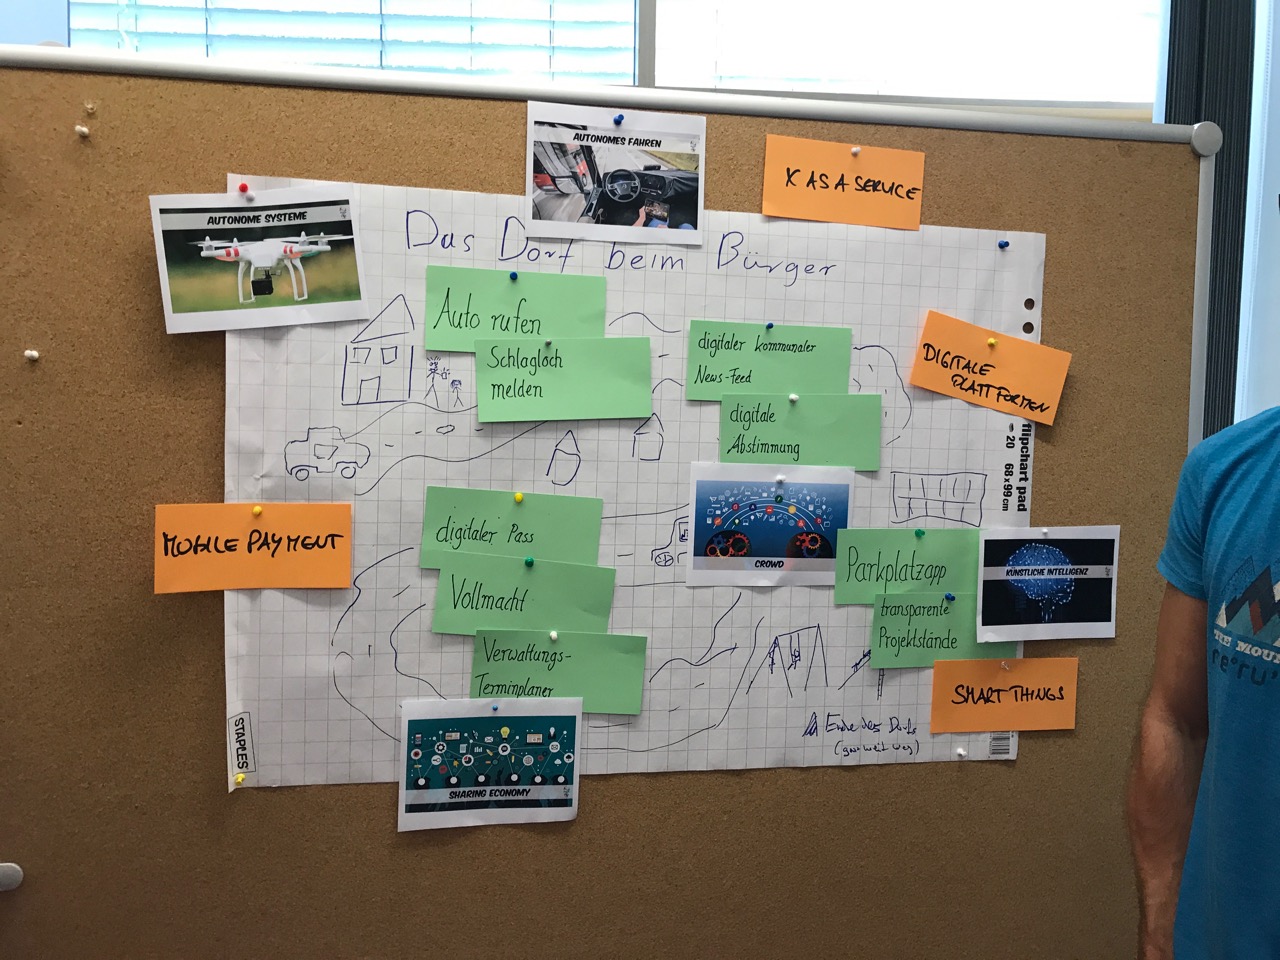 AUTONOMES FAHREN
X AS A SERVICE
AUTONOME SYSTEME
Das Dorf beim Bürger
Auto rufen
Schlagloch
melden
digitaler kommunaler
News-Feed
digitale
Abstimmung
DIGITALE
PLATTFORMEN
flipchart pad
20 68x99cm
MOBILE PAYMENT
digitaler Pass
Vollmacht
Verwaltungs-
Terminplaner
CROWD
Parkplatzapp
transparente
Projektstände
KÜNSTLICHE INTELLIGENZ
SMART THINGS
Ende des Dorfs
(ganz weit weg)
STAPLES
SHARING ECONOMY